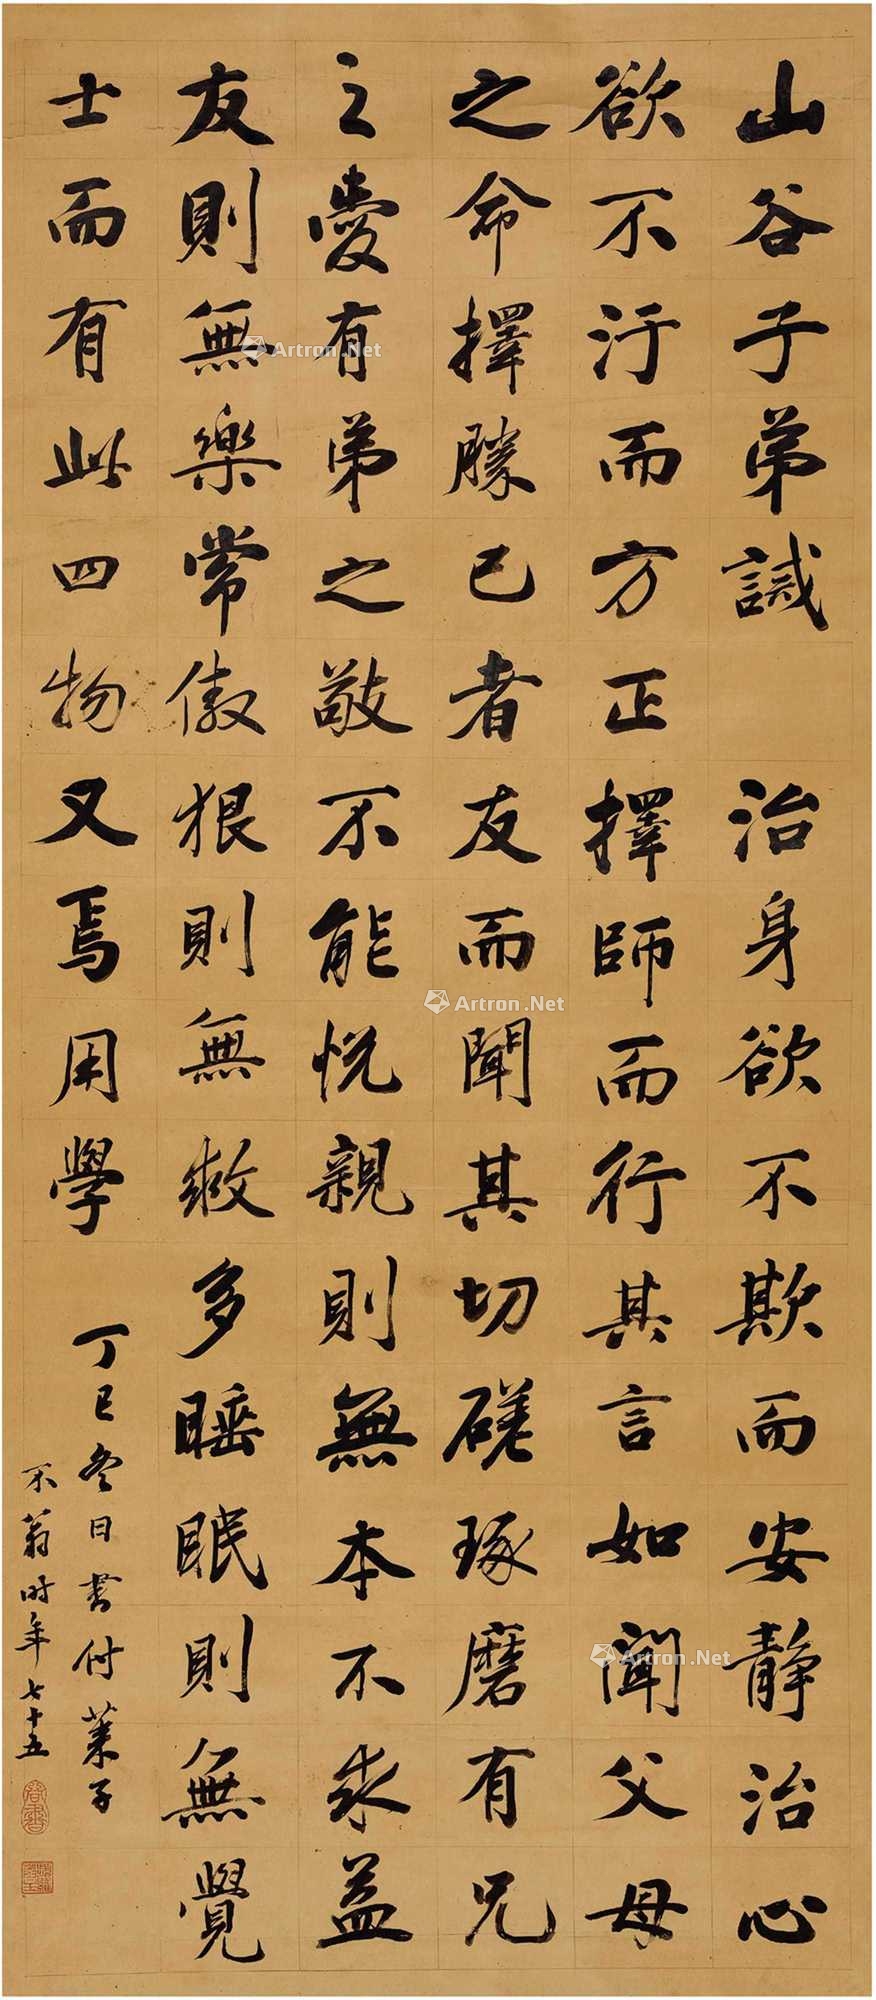 山谷子弟誡　治身欲不欺而安靜治心
欲不汙而方正擇師而行其言如聞父母
之命擇勝己者友而聞其切磋琢磨有兄
之愛有弟之敬不能悅親則無本不求益
友則無樂常傲狠則無救多睡眠則無覺
士而有此四物又焉用學
丁巳冬日書付葉子
不翁時年七十五
Artron.Net
Artron.Net
Artron.Net